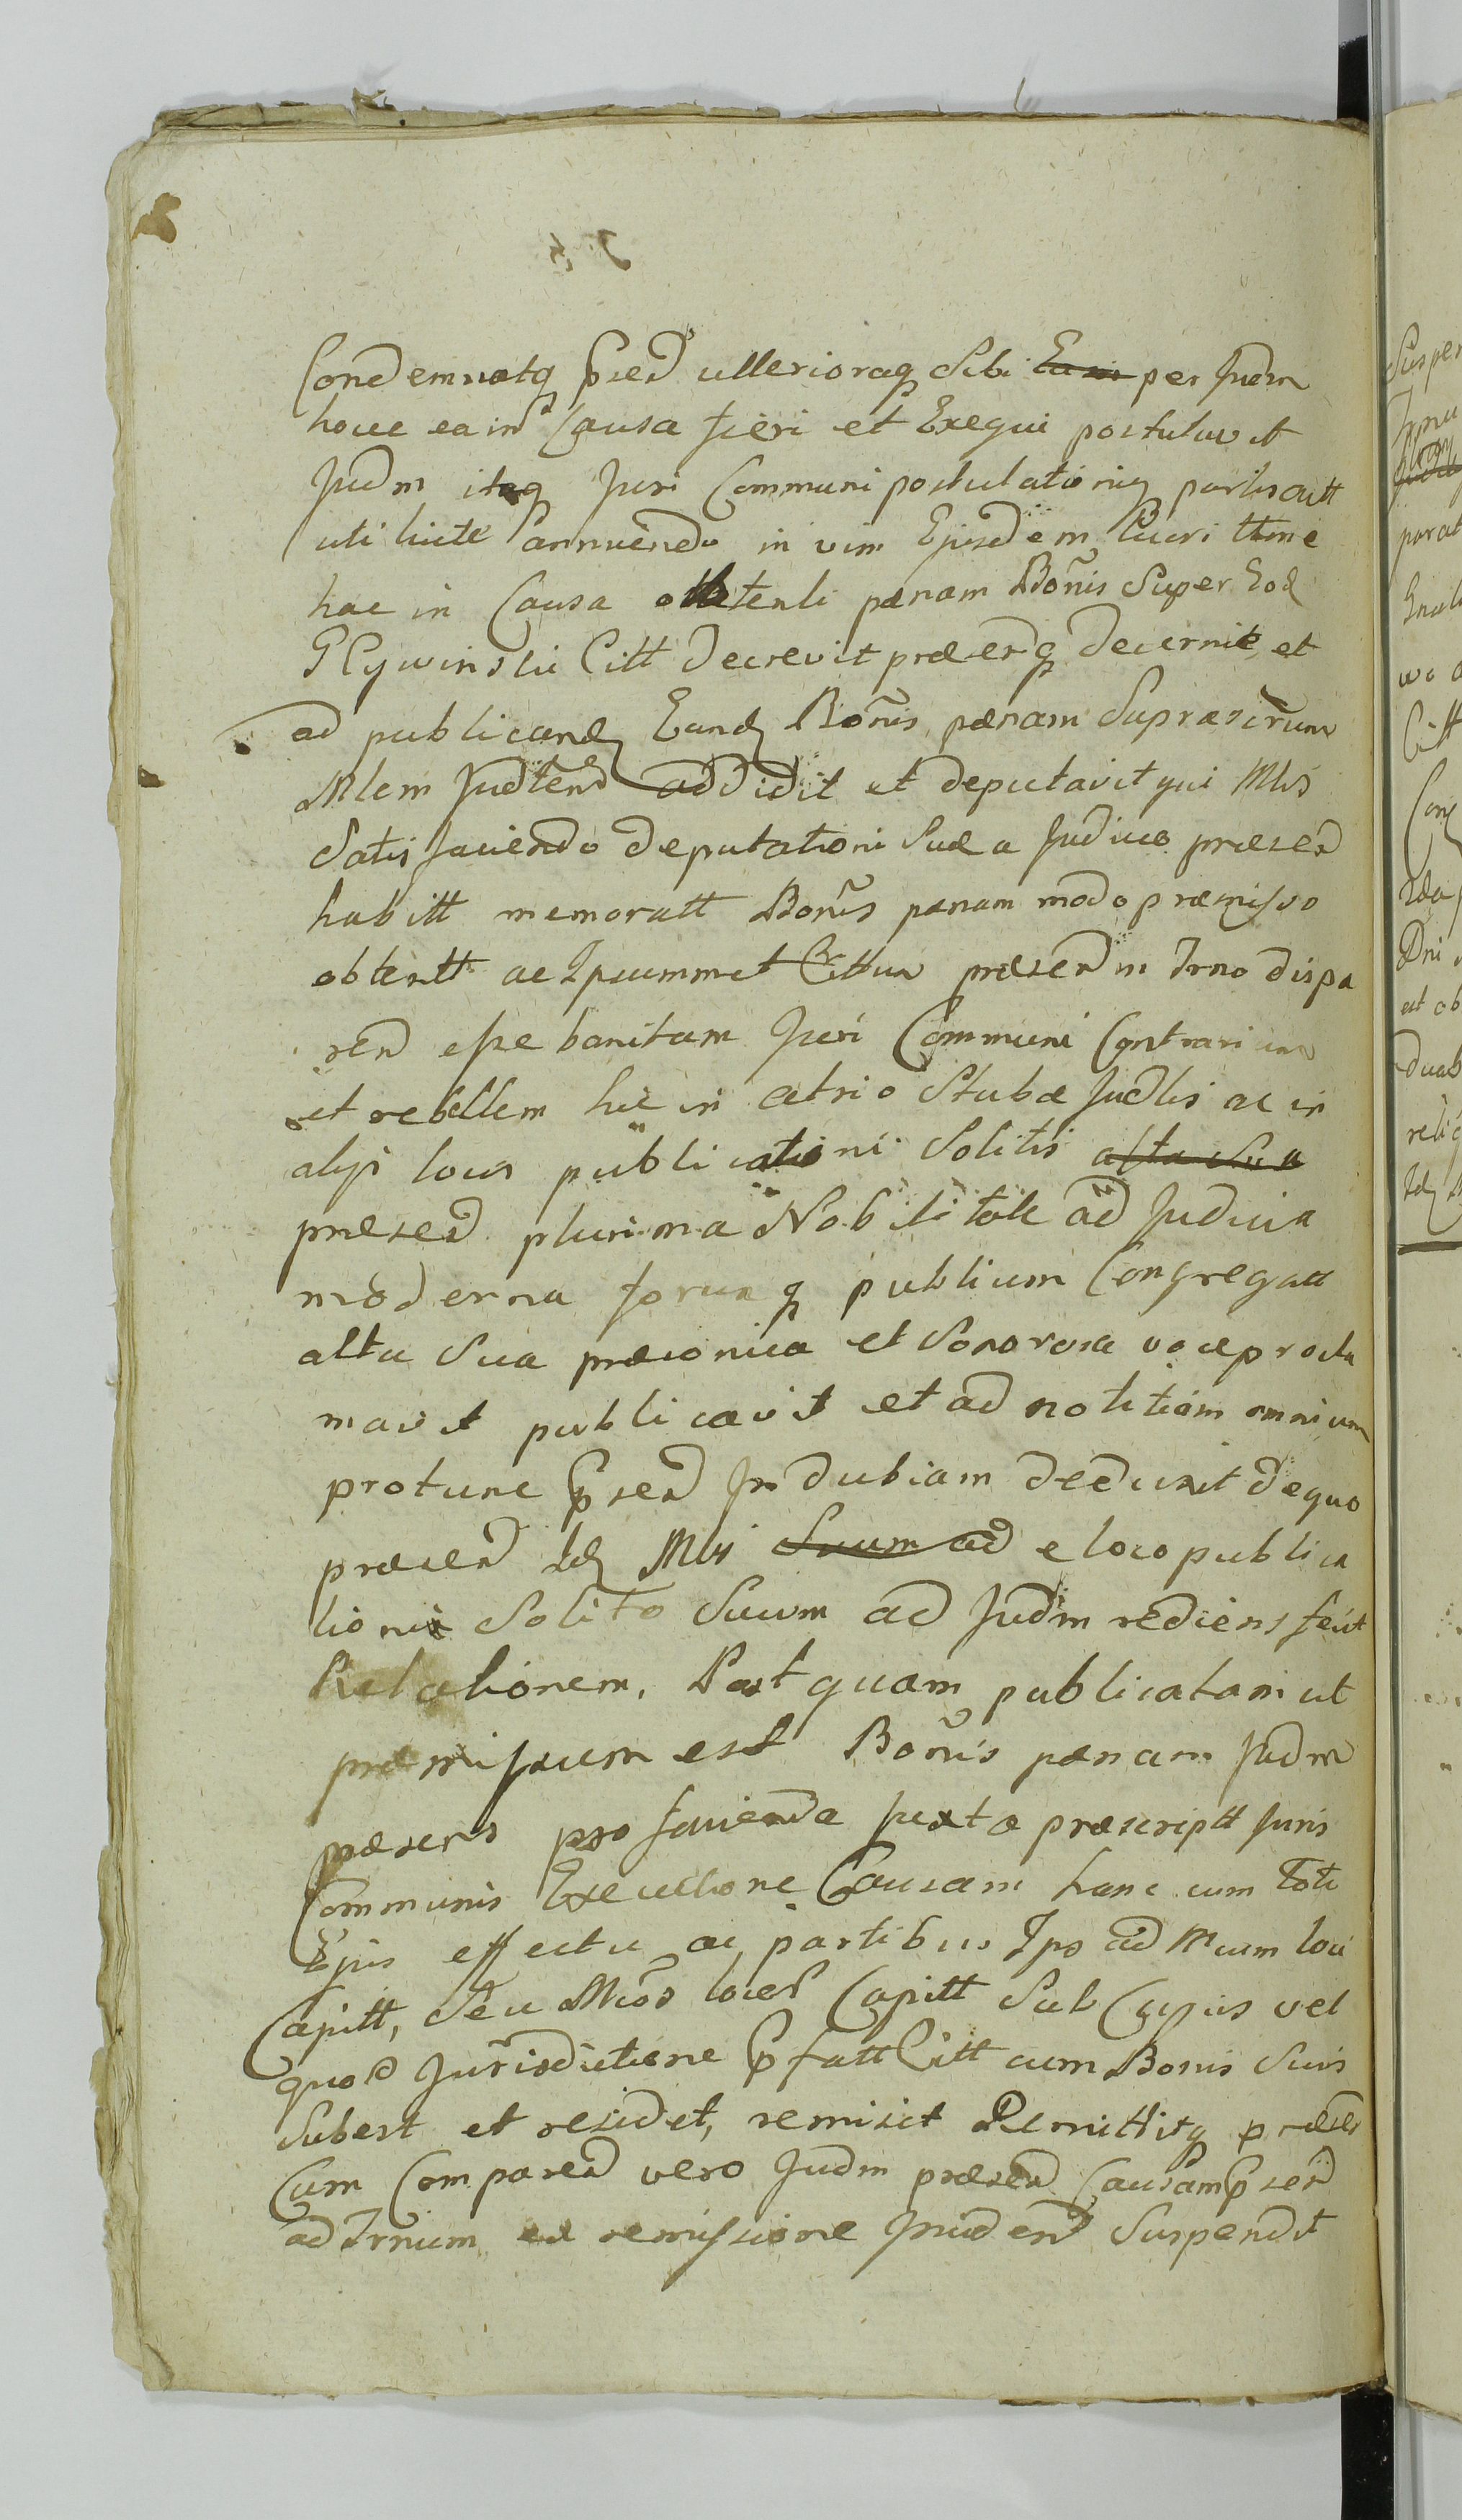 Condemnatq præsd ulterioraq Sibi Eam per Judm
hocce ea in Causa fieri et Exequi postulavit
Judm itaq Juri Communi postulationiq partis actt
uti licite annuendo in vim Ejusdem Lucri ttme
hac in Causa obtenti pænam Bonis Super Eod
Plywinski Citt decrevit præsenq decernit, et
ad publicand Eand Bonis pænam Suprascrum
Mlem Judlend addidit et deputavit qui Mlis
Satisfaciendo deputationi Suæ a Judico præsed
habitt memoratt Bonis pænam modo præmisso
obtentt ac Ipsummet Cittum præsen in Trno dispa
ren esse banitam Juri Communi Contrarium
et rebellem hic in atrio Stubæ Judlis ac in
alijs locis publicationi Solitis alta Sua
præsed plurima Nobilitate ad Judicia
moderna forumq publicum Congregatt
alta Sua præconica et Sonorosa voce procla
mavit publicavit et ad notitiam omnium
protunc præsed Indubiam deduxit de quo
præsed Id Mlis Suum ad e loco publica
tionis Solito Suum ad Judm rediens fecit
Relationem. Post quam publicatam ut
præmissum est Bonis pænam Judm
præsens pro facienda Juxta præscriptt Juris
Communis Executione Causam hanc cum toto
Ejus effectu ac partibus Ips ad Mcum loci
Capitt, Seu Mcos locor Capitt Sub Cujus vel
quor Jurisdictione præfatt Citt cum Bonis Suis
Subest et residet, remisit Remittitq præsen
Cum Comparend vero Judm præsed Causam præsed
ad Trnum ex remissione Inciden Suspendit